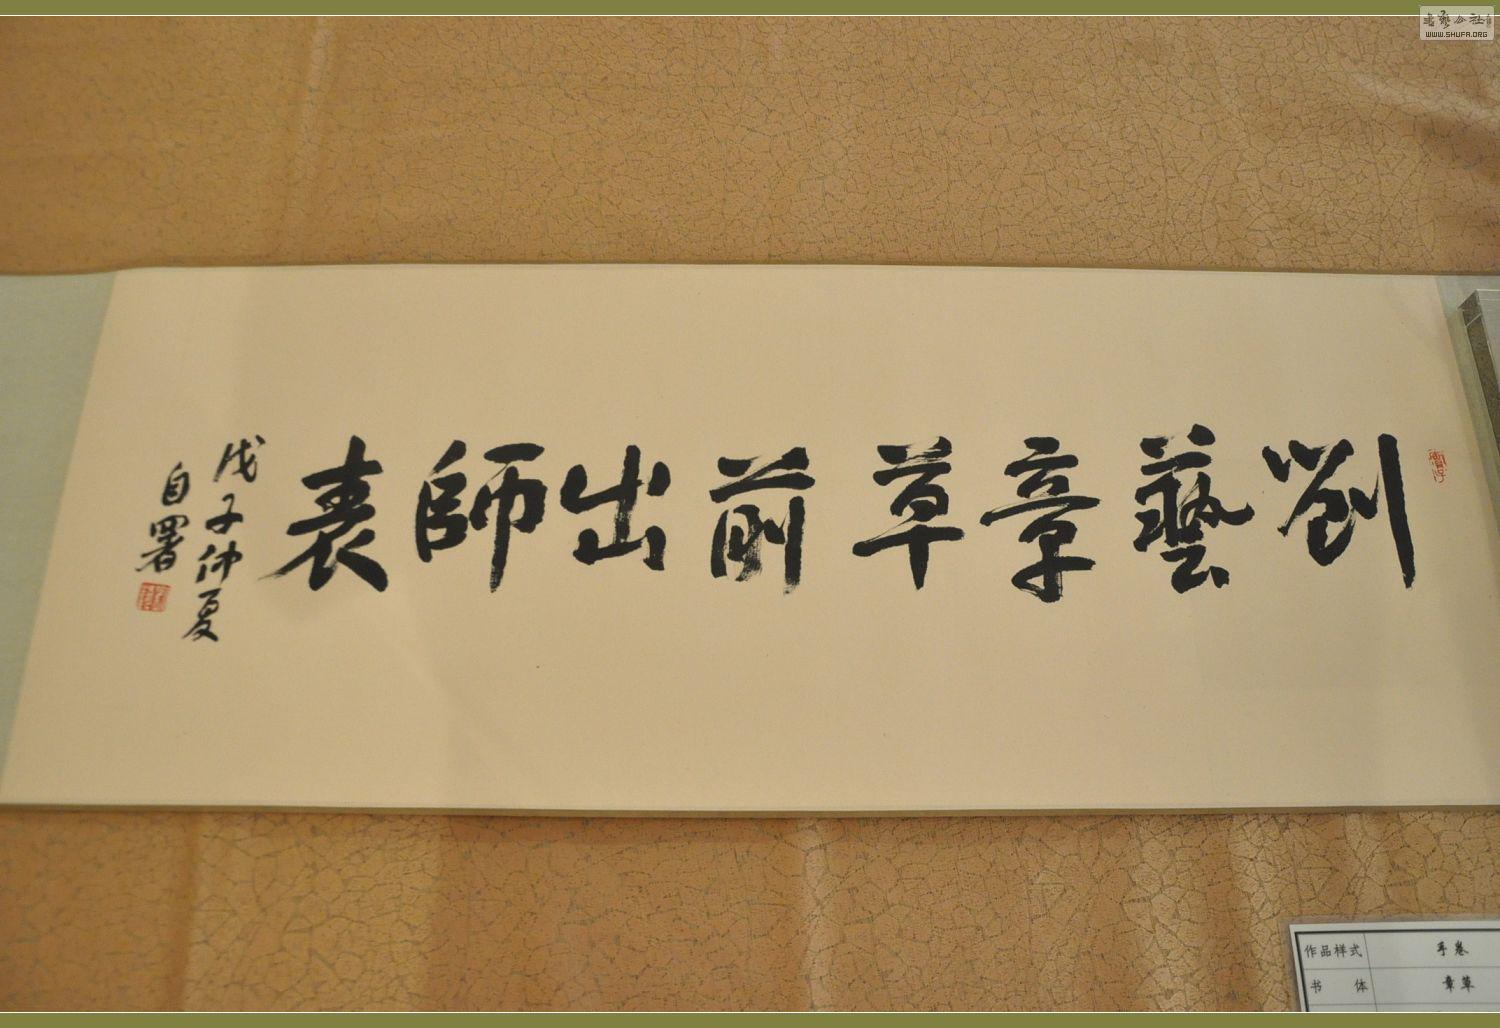 劉藝章草前出師表
戊子仲夏
自署
作品样式 手卷
书体 章草
书艺公社
WWW.SHUFA.ORG